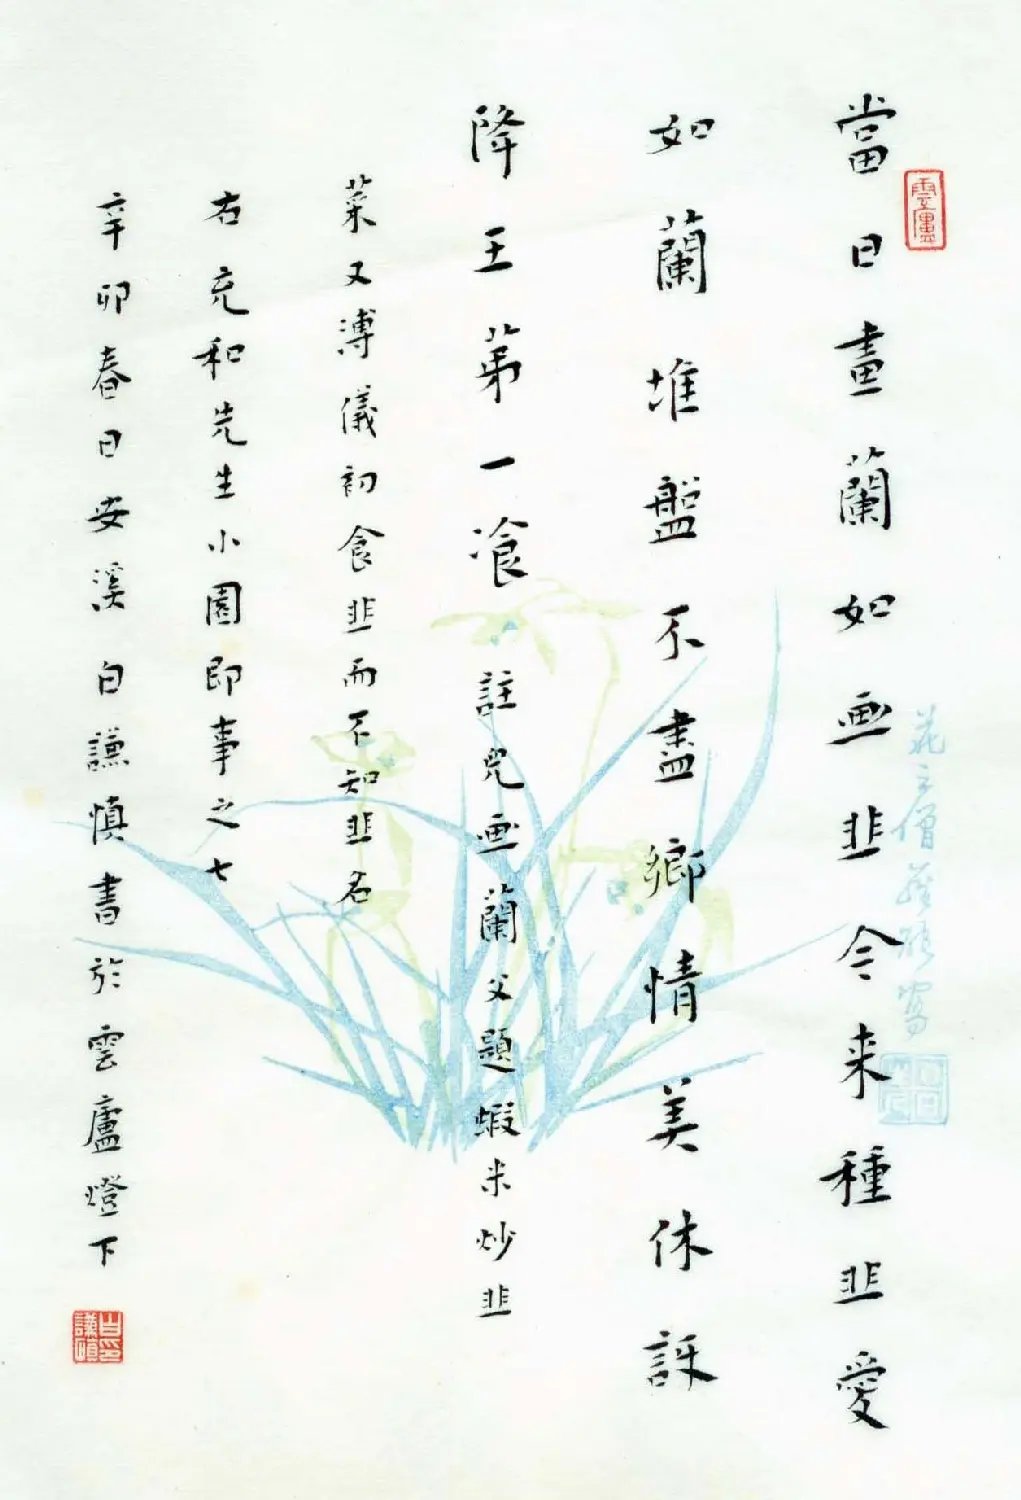 當日畫蘭如画韭今来種韭愛
如蘭堆盤不盡鄉情美休訝
降王第一飡 註兒画蘭父題蝦米炒韭
菜又溥儀初食韭而不知韭名
右充和先生小園即事之七
辛卯春日安溪白謙慎書於雲廬燈下
雲廬
白謙慎印